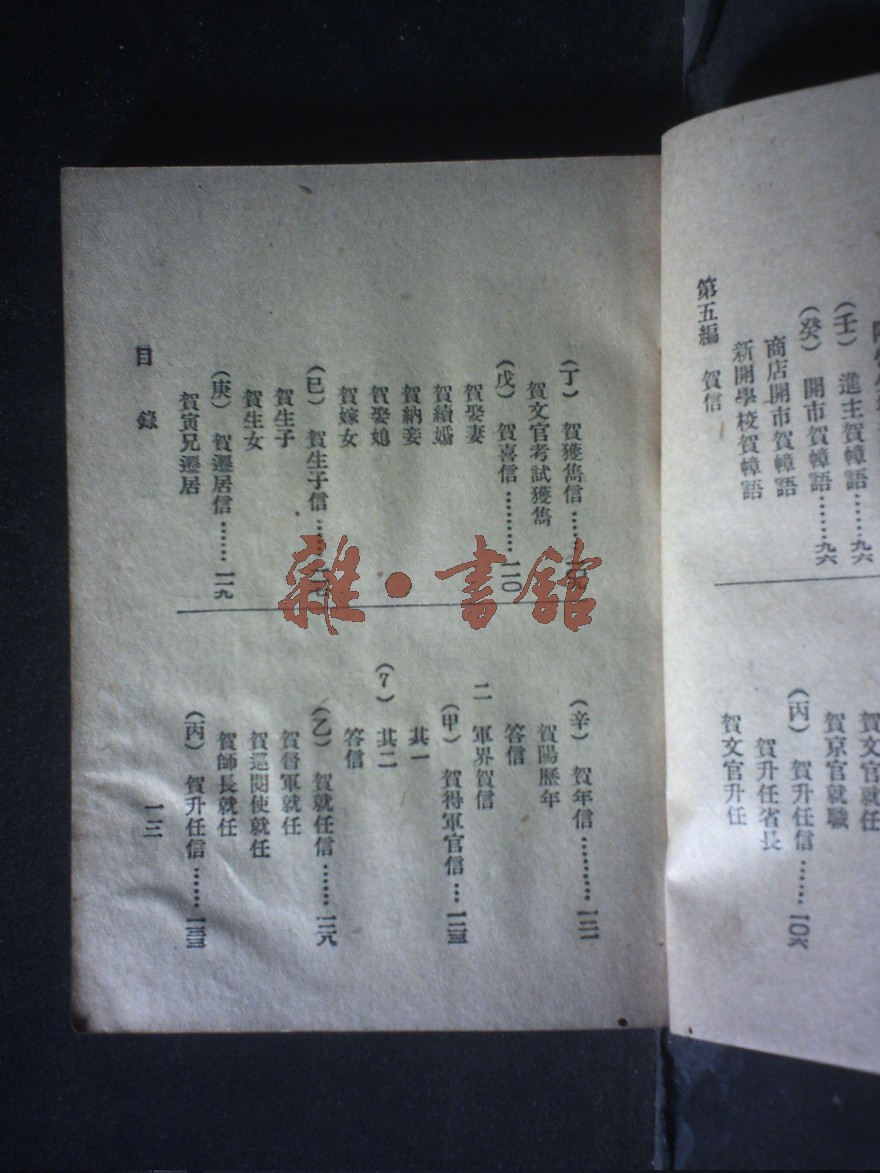 (壬) 進主賀幛語……九六
(癸) 開市賀幛語……九六
商店開市賀幛語
新開學校賀幛語
第五編 賀信
賀文官就任
賀京官就職
(丙) 賀升任信……一〇六
賀升任省長
賀文官升任
(丁) 賀獲雋信……一〇九
賀文官考試獲雋
(戊) 賀喜信…………一一〇
賀娶妻
賀續婚
賀納妾
賀娶媳
賀嫁女
(巳) 賀生子信
賀生子
賀生女
(庚) 賀遷居信……一一九
賀寅兄遷居
(辛) 賀年信…………一二一
賀陽歷年
答信
二 軍界賀信
(甲) 賀得軍官信…一二三
其一
(7) 其二
答信
(乙) 賀就任信……一二八
賀督軍就任
賀巡閱使就任
賀師長就任
(丙) 賀升任信……一三三
目錄
一三
雜·書館